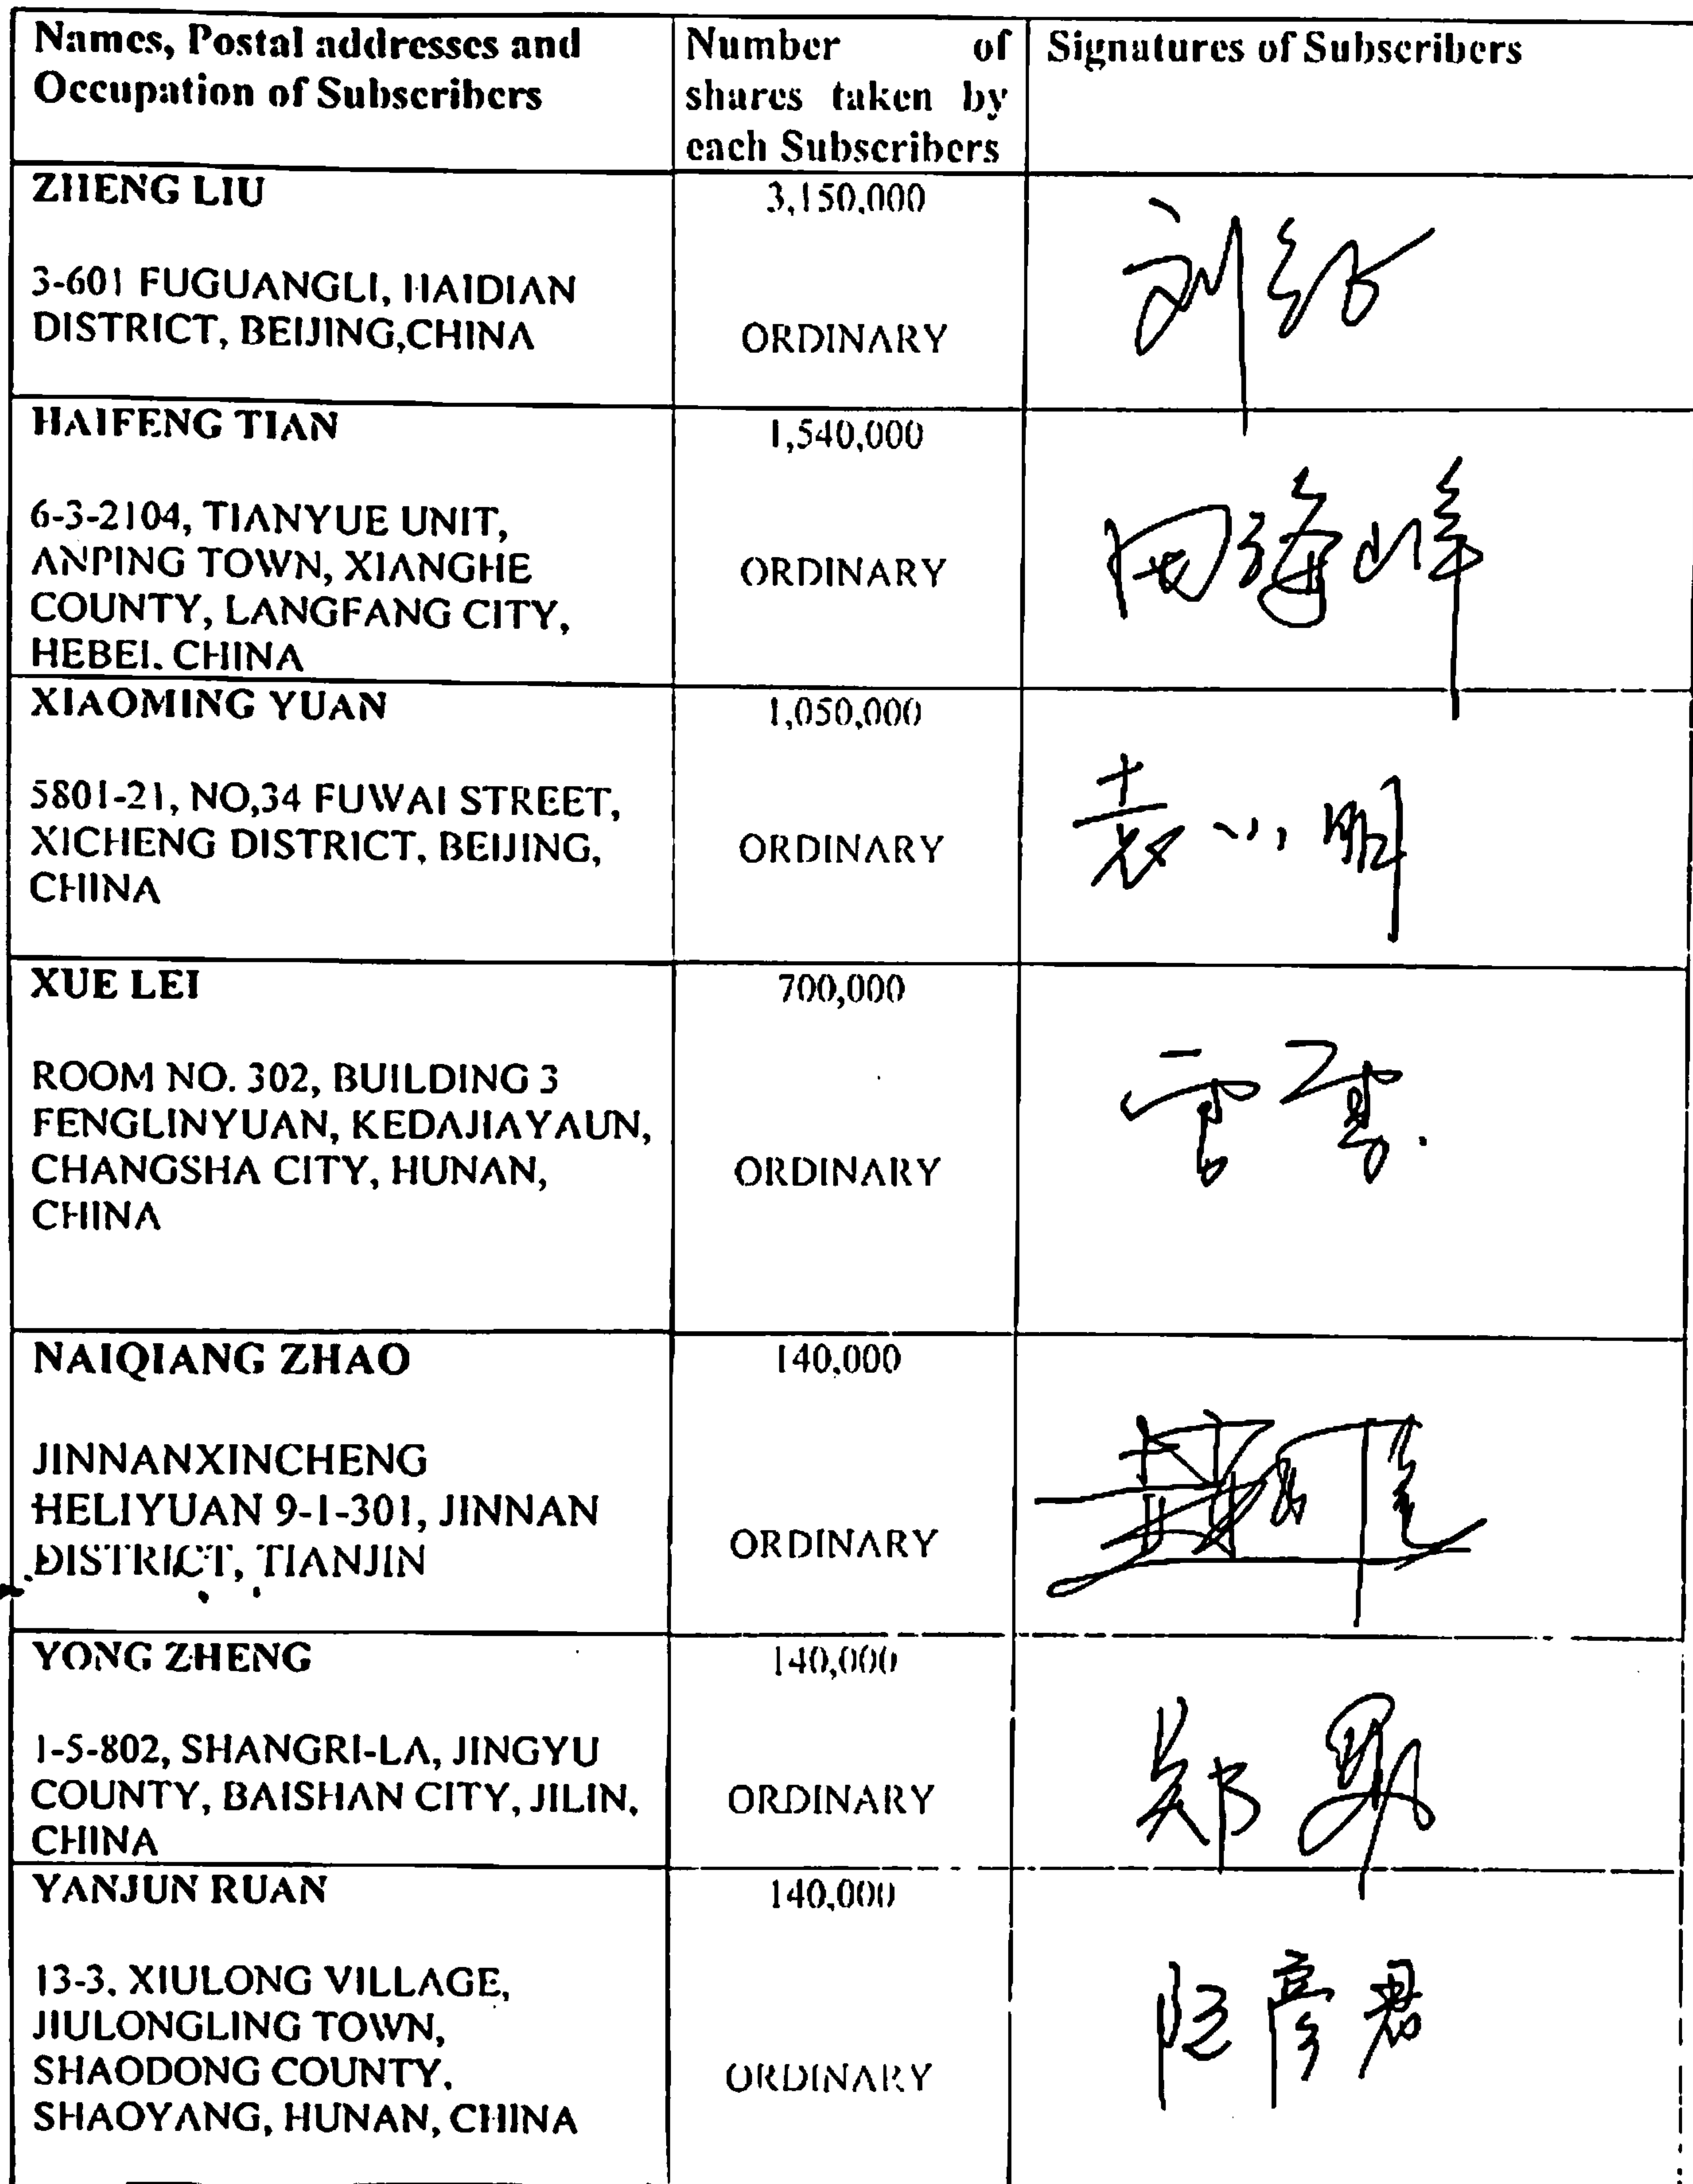 Names, Postal addresses and
Occupation of Subscribers
Number of
shares taken by
each Subscribers
Signatures of Subscribers
ZHENG LIU
3-601 FUGUANGLI, HAIDIAN
DISTRICT, BEIJING,CHINA
3,150,000
ORDINARY
刘
HAIFENG TIAN
6-3-2104, TIANYUE UNIT,
ANPING TOWN, XIANGHE
COUNTY, LANGFANG CITY,
HEBEI, CHINA
1,540,000
ORDINARY
田海峰
XIAOMING YUAN
5801-21, NO,34 FUWAI STREET,
XICHENG DISTRICT, BEIJING,
CHINA
1,050,000
ORDINARY
袁小明
XUE LEI
ROOM NO. 302, BUILDING 3
FENGLINYUAN, KEDAJIAYAUN,
CHANGSHA CITY, HUNAN,
CHINA
700,000
ORDINARY
雷雪
NAIQIANG ZHAO
JINNANXINCHENG
HELIYUAN 9-1-301, JINNAN
DISTRICT, TIANJIN
140,000
ORDINARY
YONG ZHENG
1-5-802, SHANGRI-LA, JINGYU
COUNTY, BAISHAN CITY, JILIN,
CHINA
140,000
ORDINARY
郑勇
YANJUN RUAN
13-3, XIULONG VILLAGE,
JIULONGLING TOWN,
SHAODONG COUNTY,
SHAOYANG, HUNAN, CHINA
140,000
ORDINARY
阮彦君